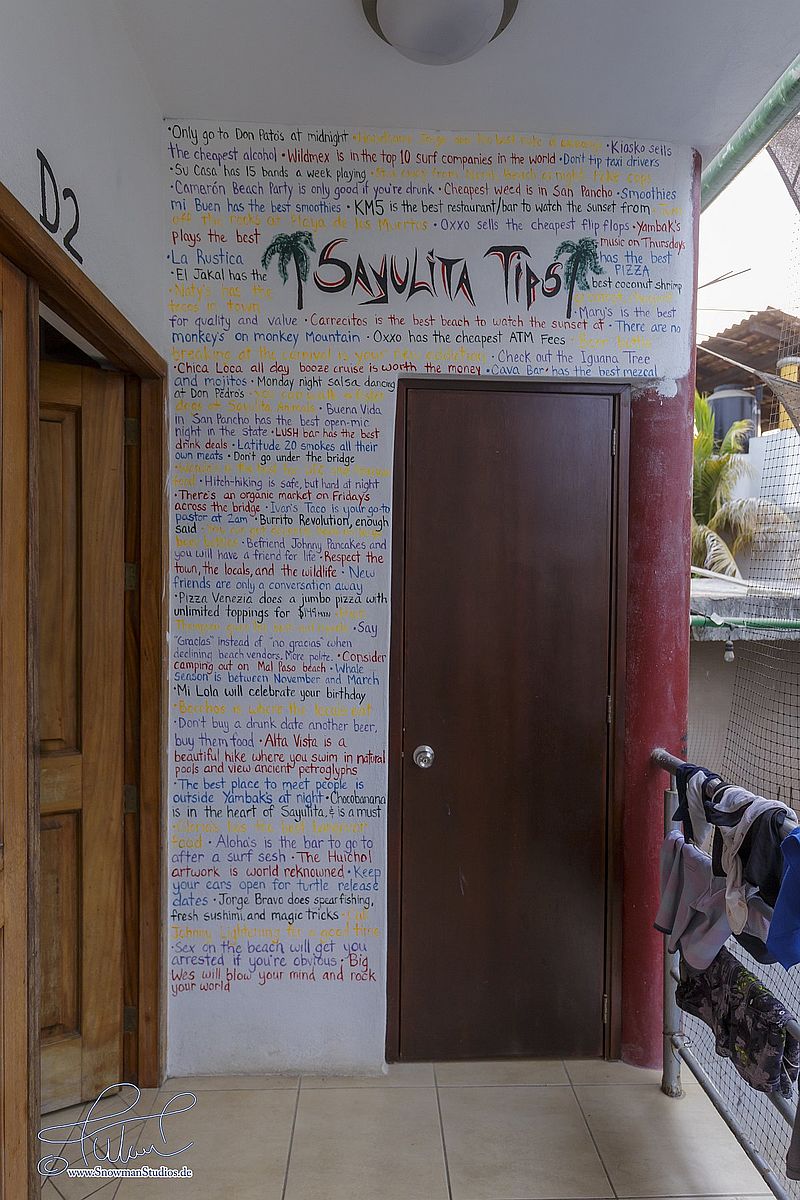 D2
•Only go to Don Pato's at midnight • •Kiosko sells
the cheapest alcohol •Wildmex is in the top 10 surf companies in the world •Don't tip taxi drivers
•Su Casa has 15 bands a week playing •
•Camarón Beach Party is only good if you're drunk •Cheapest weed is in San Pancho •Smoothies
mi Buen has the best smoothies •KM5 is the best restaurant/bar to watch the sunset from •
off the rocks at Playa de los Muertos •Oxxo sells the cheapest flip flops •Yambak's
plays the best music on Thursdays
•La Rustica has the best
PIZZA
•El Jakal has the best coconut shrimp
•Naty's has the
tacos in town
•Mary's is the best
SAYULITA TIPS
for quality and value •Carrecitos is the best beach to watch the sunset at •There are no
monkey's on monkey Mountain •Oxxo has the cheapest ATM Fees •
breaking at the carnival is your new addiction •Check out the Iguana Tree
•Chica Loca all day booze cruise is worth the money •Cava Bar has the best mezcal
and mojitos •Monday night salsa dancing
at Don Pedro's •
dogs at Sayulita Animals •Buena Vida
in San Pancho has the best open-mic
night in the state •LUSH bar has the best
drink deals •Latitude 20 smokes all their
own meats •Don't go under the bridge
food •Hitch-hiking is safe, but hard at night
•There's an organic market on Friday's
across the bridge •Ivan's Taco is your go-to
pastor at 2am •Burrito Revolution, enough
said •
•Befriend Johnny Pancakes and
you will have a friend for life •Respect the
town, the locals, and the wildlife •New
friends are only a conversation away
•Pizza Venezia does a jumbo pizza with
unlimited toppings for $149mxn
•Say
"Gracias" instead of "no gracias" when
declining beach vendors. More polite. •Consider
camping out on Mal Paso beach •Whale
season is between November and March
•Mi Lola will celebrate your birthday
•Don't buy a drunk date another beer,
buy them food •Alta Vista is a
beautiful hike where you swim in natural
pools and view ancient petroglyphs
•The best place to meet people is
outside Yambak's at night •Chocobanana
is in the heart of Sayulita, & is a must
food •Aloha's is the bar to go to
after a surf sesh •The Huichol
artwork is world reknowned •Keep
your ears open for turtle release
dates •Jorge Bravo does spearfishing,
fresh sushimi, and magic tricks •Call
Johnny Lightening for a good time
•Sex on the beach will get you
arrested if you're obvious •Big
Wes will blow your mind and rock
your world
© www.SnowmanStudios.de